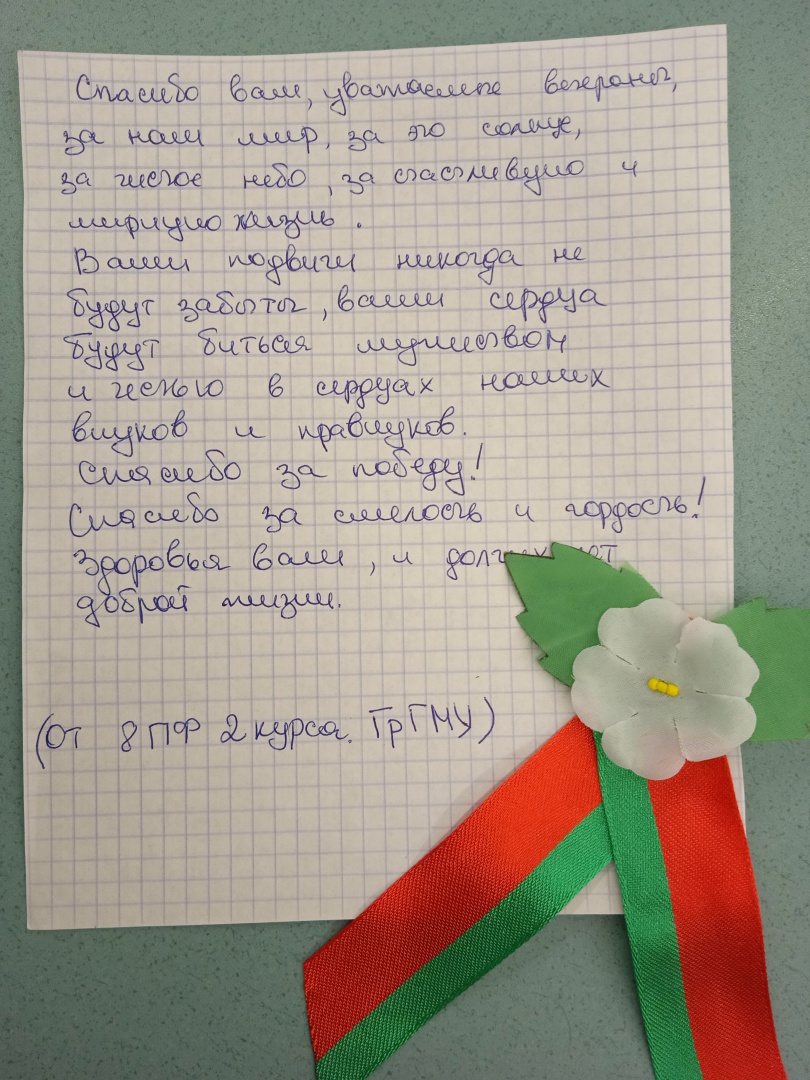 Спасибо вам, уважаемые ветераны,
за наш мир, за это солнце,
за чистое небо, за счастливую и
мирную жизнь.
Ваши подвиги никогда не
будут забыты, ваши сердца
будут биться мужеством
и честью в сердцах наших
внуков и правнуков.
Спасибо за победу!
Спасибо за смелость и гордость!
Здоровья вам, и
доброй жизни.
(От 8 ПФ 2 курса. ГрГМУ)